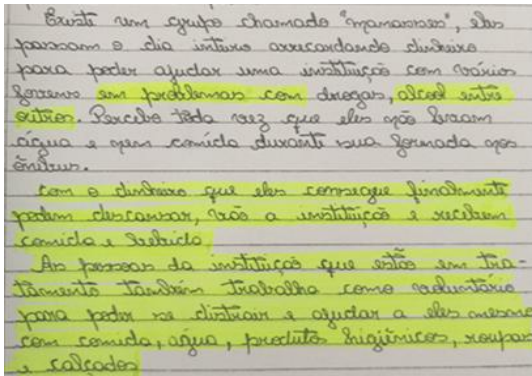 Existe um grupo chamado "manassés", eles
passam o dia inteiro arrecardando dinheiro
para poder ajudar uma instituição com vários
jovens em problemas com drogas, alcool entre
outros. Percebo toda vez que eles não levam
água e nem comida durante sua jornada nos
ônibus.
Com o dinheiro que eles consegue finalmente
podem descansar, vão a instituição e recebem
comida e bebida
As pessoas da instituição que estão em tra-
tamento também trabalha como voluntário
para poder se distrair e ajudar a eles mesmo
com comida, água, produtos higiênicos, roupas
e calçados